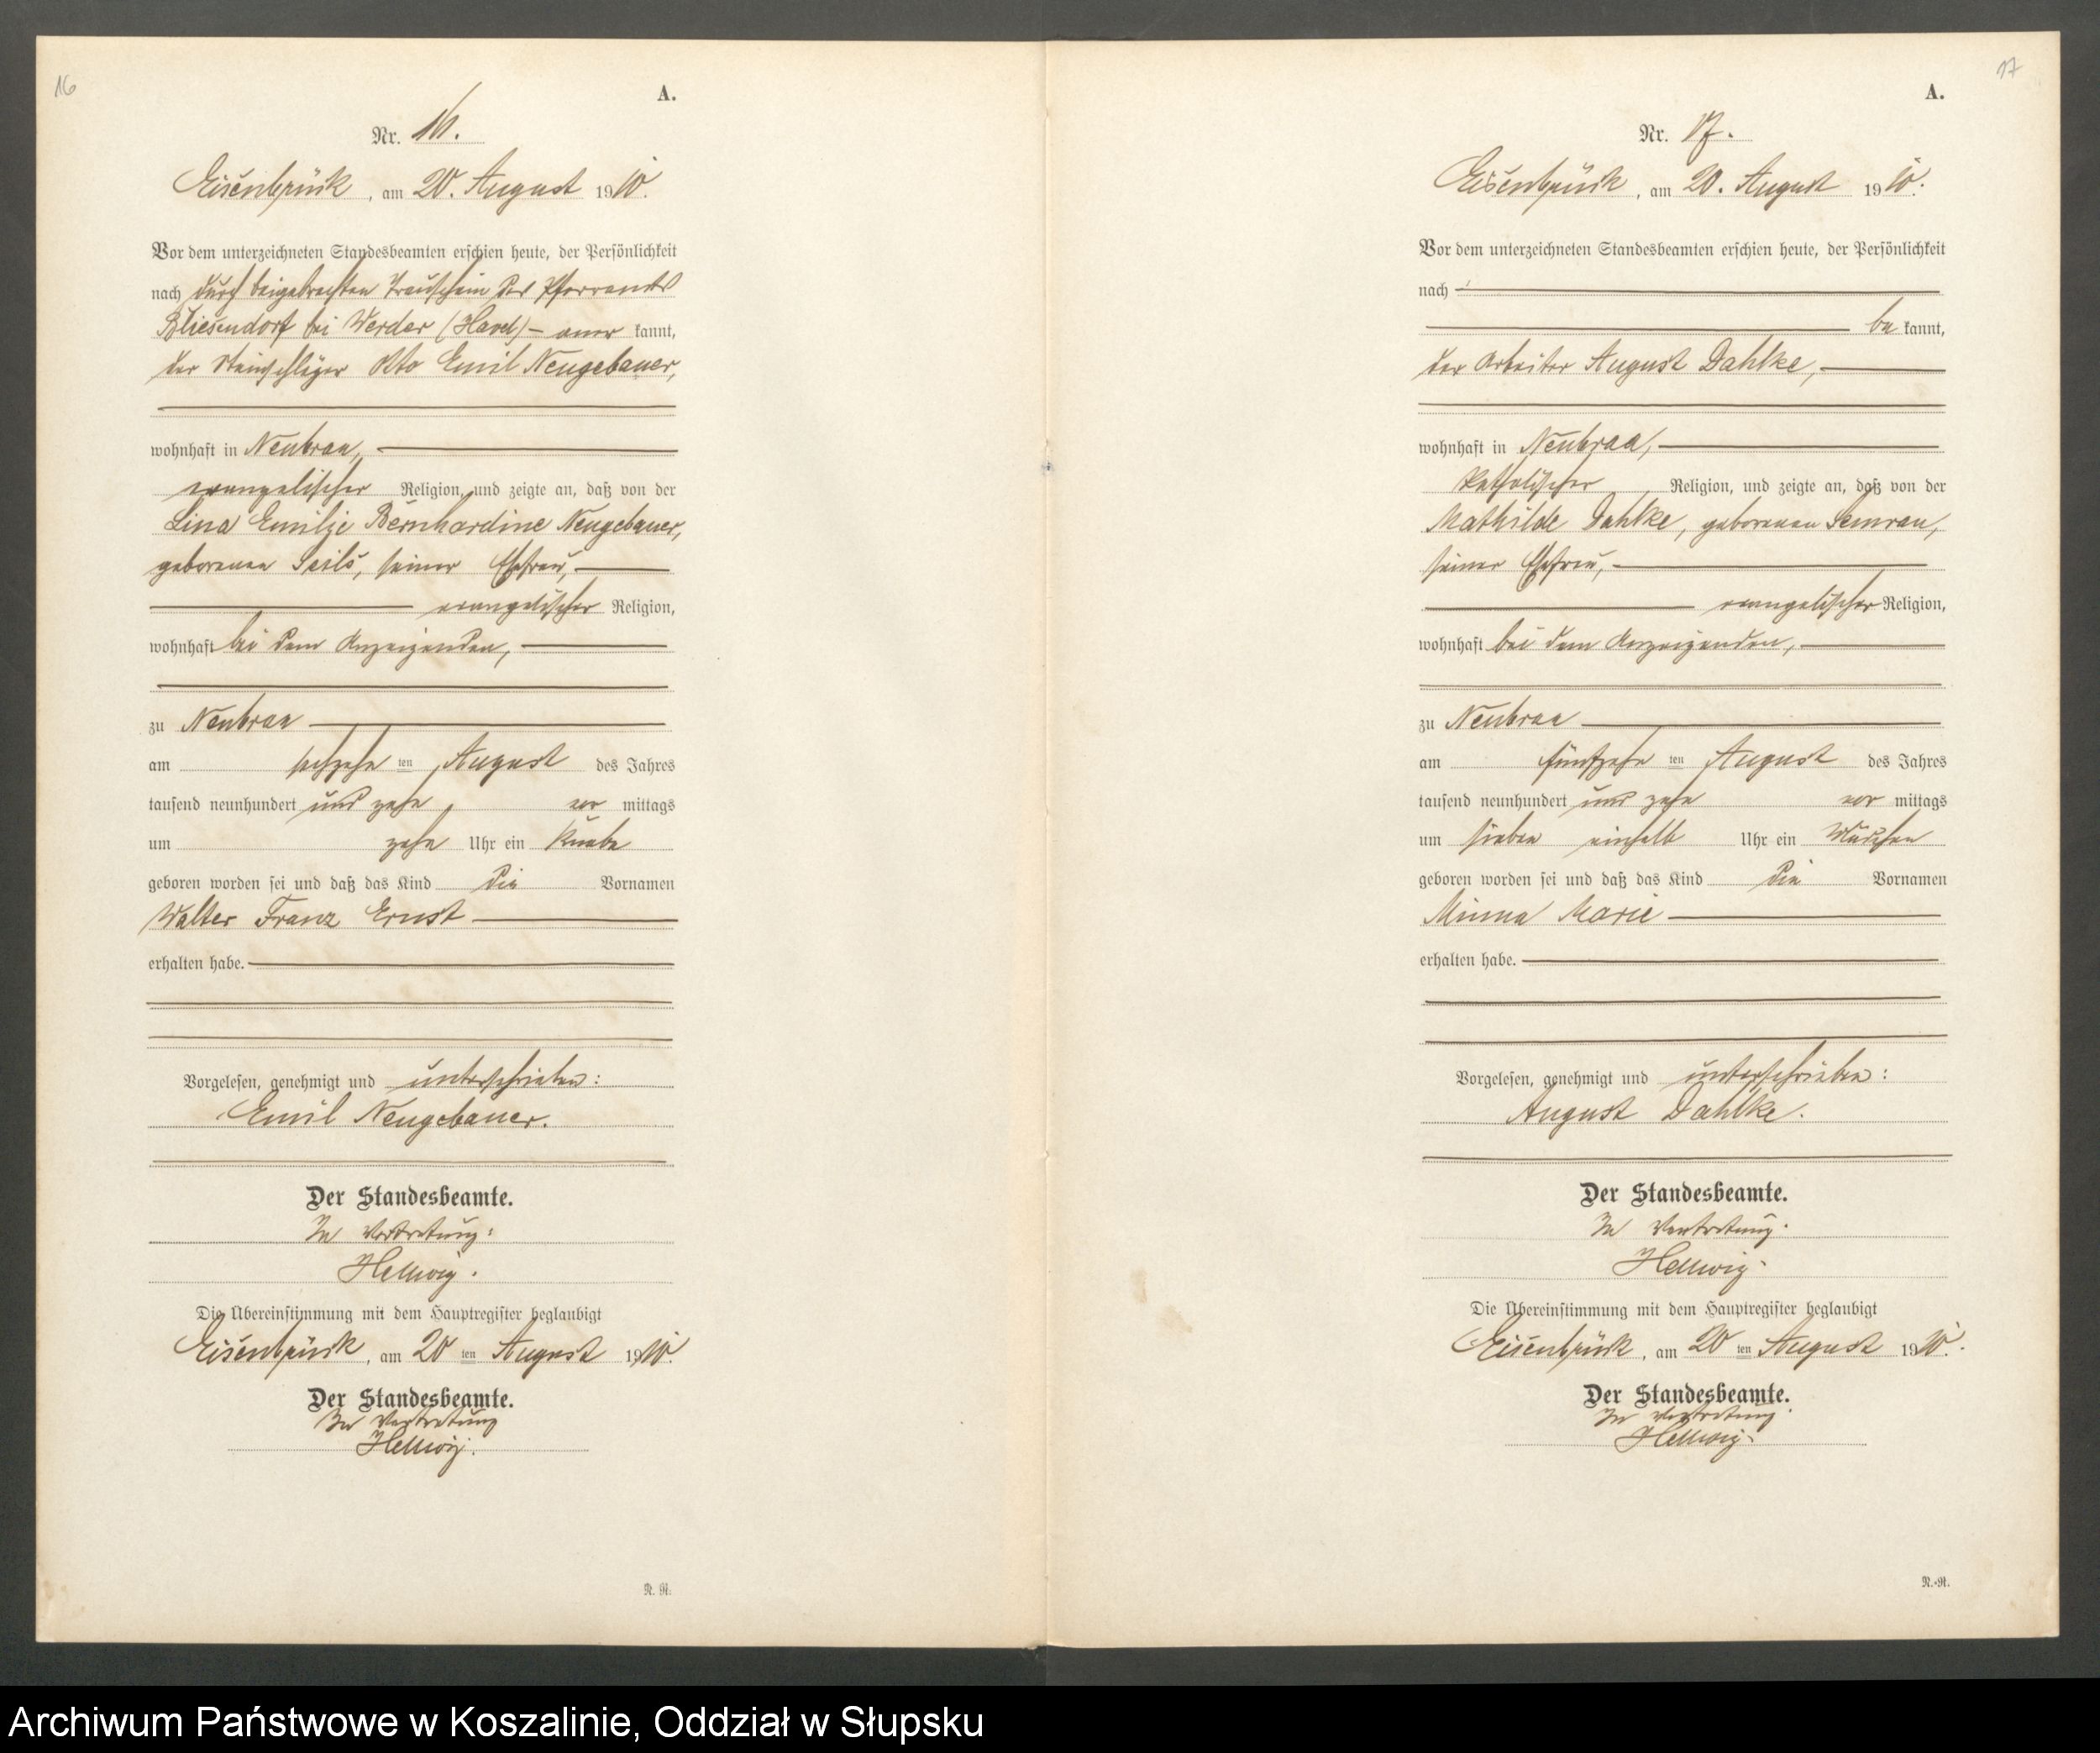 16
A.
Nr. 16.
Eisenbrück, am 20. August 1910.
Vor dem unterzeichneten Standesbeamten erschien heute, der Persönlichkeit
nach durch beigebrachten Trauschein des Pfarramts
Bliesendorf bei Werder (Havel) – aner kannt,
der Steinschläger Otto Emil Neugebauer,
wohnhaft in Neubraa,
evangelischer Religion, und zeigte an, daß von der
Lina Emilie Bernhardine Neugebauer,
geborenen Seils, seiner Ehefrau,
evangelischer Religion,
wohnhaft bei dem Anzeigenden,
zu Neubraa
am sechzehn ten August des Jahres
tausend neunhundert und zehn vor mittags
um zehn Uhr ein Knabe
geboren worden sei und daß das Kind die Vornamen
Walter Franz Ernst
erhalten habe.
Vorgelesen, genehmigt und unterschrieben:
Emil Neugebauer.
Der Standesbeamte.
In Vertretung:
Hellwig.
Die Übereinstimmung mit dem Hauptregister beglaubigt
Eisenbrück, am 20 ten August 1910.
Der Standesbeamte.
In Vertretung
Hellwig.
N. N.
17
A.
Nr. 17.
Eisenbrück, am 20. August 1910.
Vor dem unterzeichneten Standesbeamten erschien heute, der Persönlichkeit
nach
be kannt,
der Arbeiter August Dahlke,
wohnhaft in Neubraa,
katholischer Religion, und zeigte an, daß von der
Mathilde Dahlke, geborenen Semrau,
seiner Ehefrau,
evangelischer Religion,
wohnhaft bei dem Anzeigenden,
zu Neubraa
am fünfzehn ten August des Jahres
tausend neunhundert und zehn vor mittags
um sieben einhalb Uhr ein Mädchen
geboren worden sei und daß das Kind die Vornamen
Minna Marie
erhalten habe.
Vorgelesen, genehmigt und unterschrieben:
August Dahlke.
Der Standesbeamte.
In Vertretung.
Hellwig.
Die Übereinstimmung mit dem Hauptregister beglaubigt
Eisenbrück, am 20 ten August 1910.
Der Standesbeamte.
In Vertretung.
Hellwig.
N.-N.
Archiwum Państwowe w Koszalinie, Oddział w Słupsku